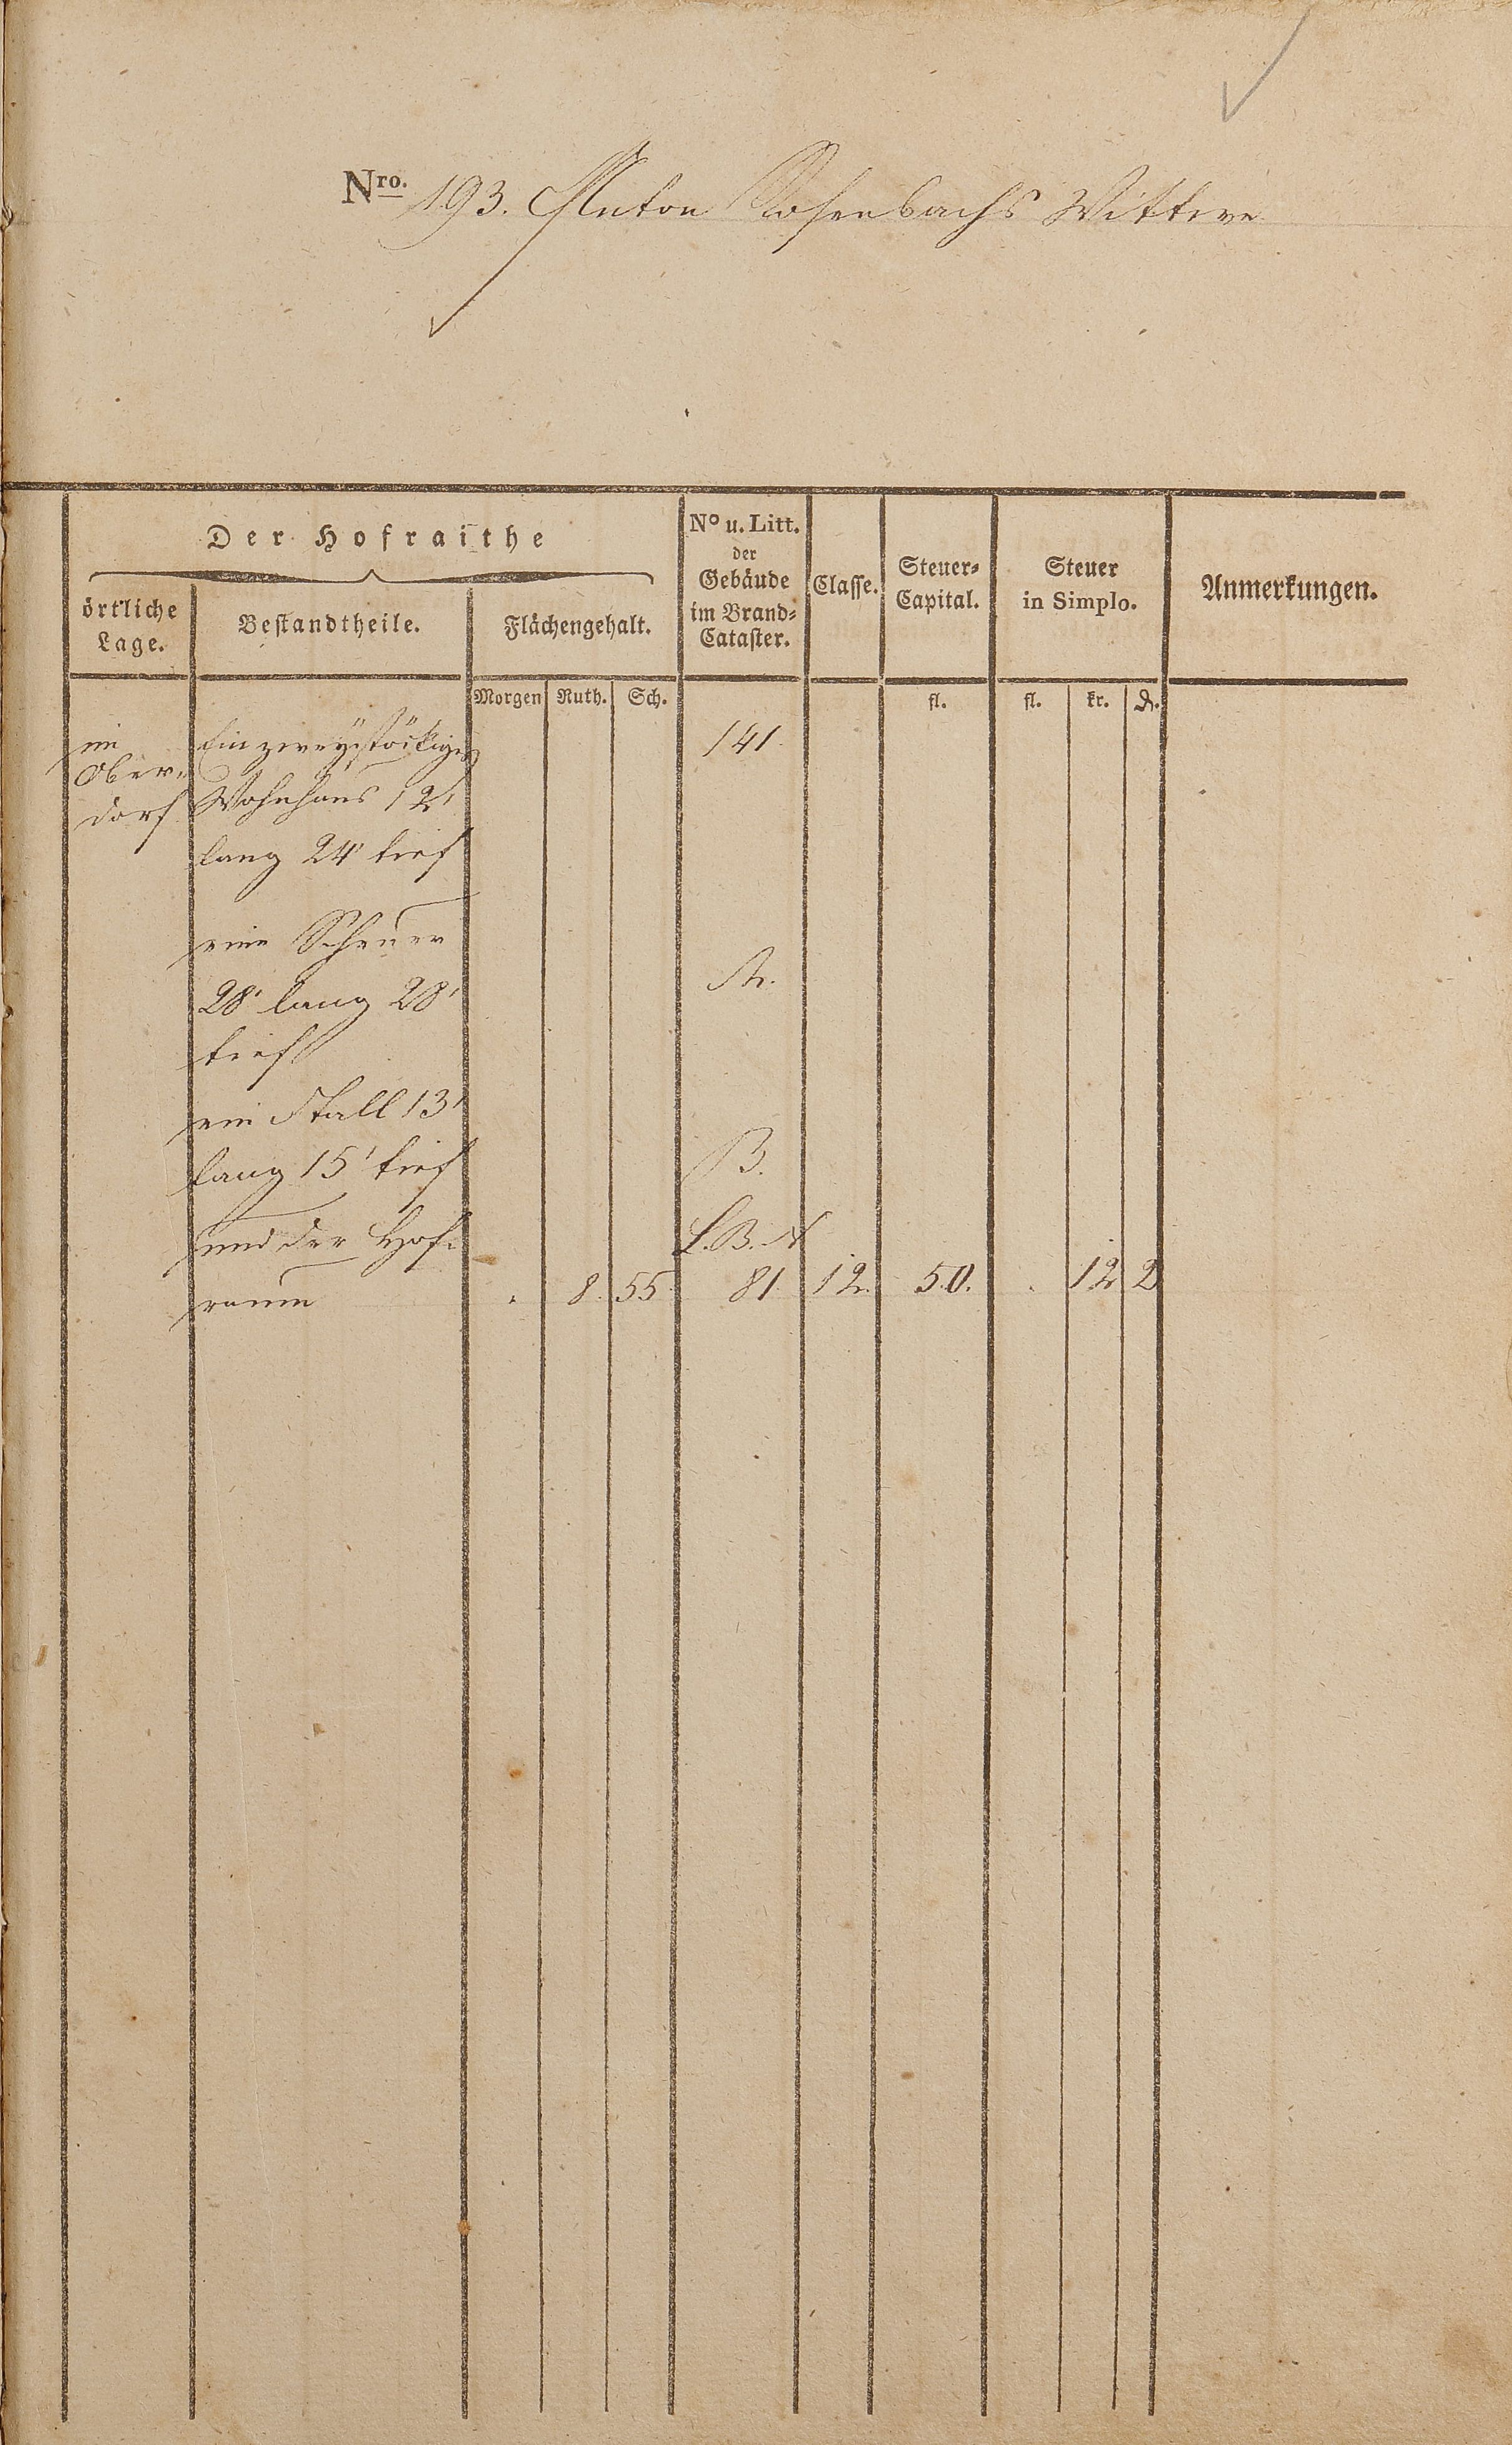 Nro. 193. Anton Rosenbachs Wittwe
Der Hofraithe
örtliche
Lage.
Bestandtheile.
Flächengehalt.
No u. Litt.
der
Gebäude
im Brand-
Cataster.
Classe.
Steuer-
Capital.
Steuer
in Simplo.
Anmerkungen.
Morgen Ruth. Sch.
fl. fl. kr. ₰.
im
Ober-
dorf
Ein zweÿstöckiges 141.
Wohnhaus 12'
lang 24' tief
eine Scheuer
28' lang 28' A.
tief
ein Stall 13'
lang 15' tief B.
und der Hof- L.B.N
raum . 8. 55. 81. 12. 50. . 12 2